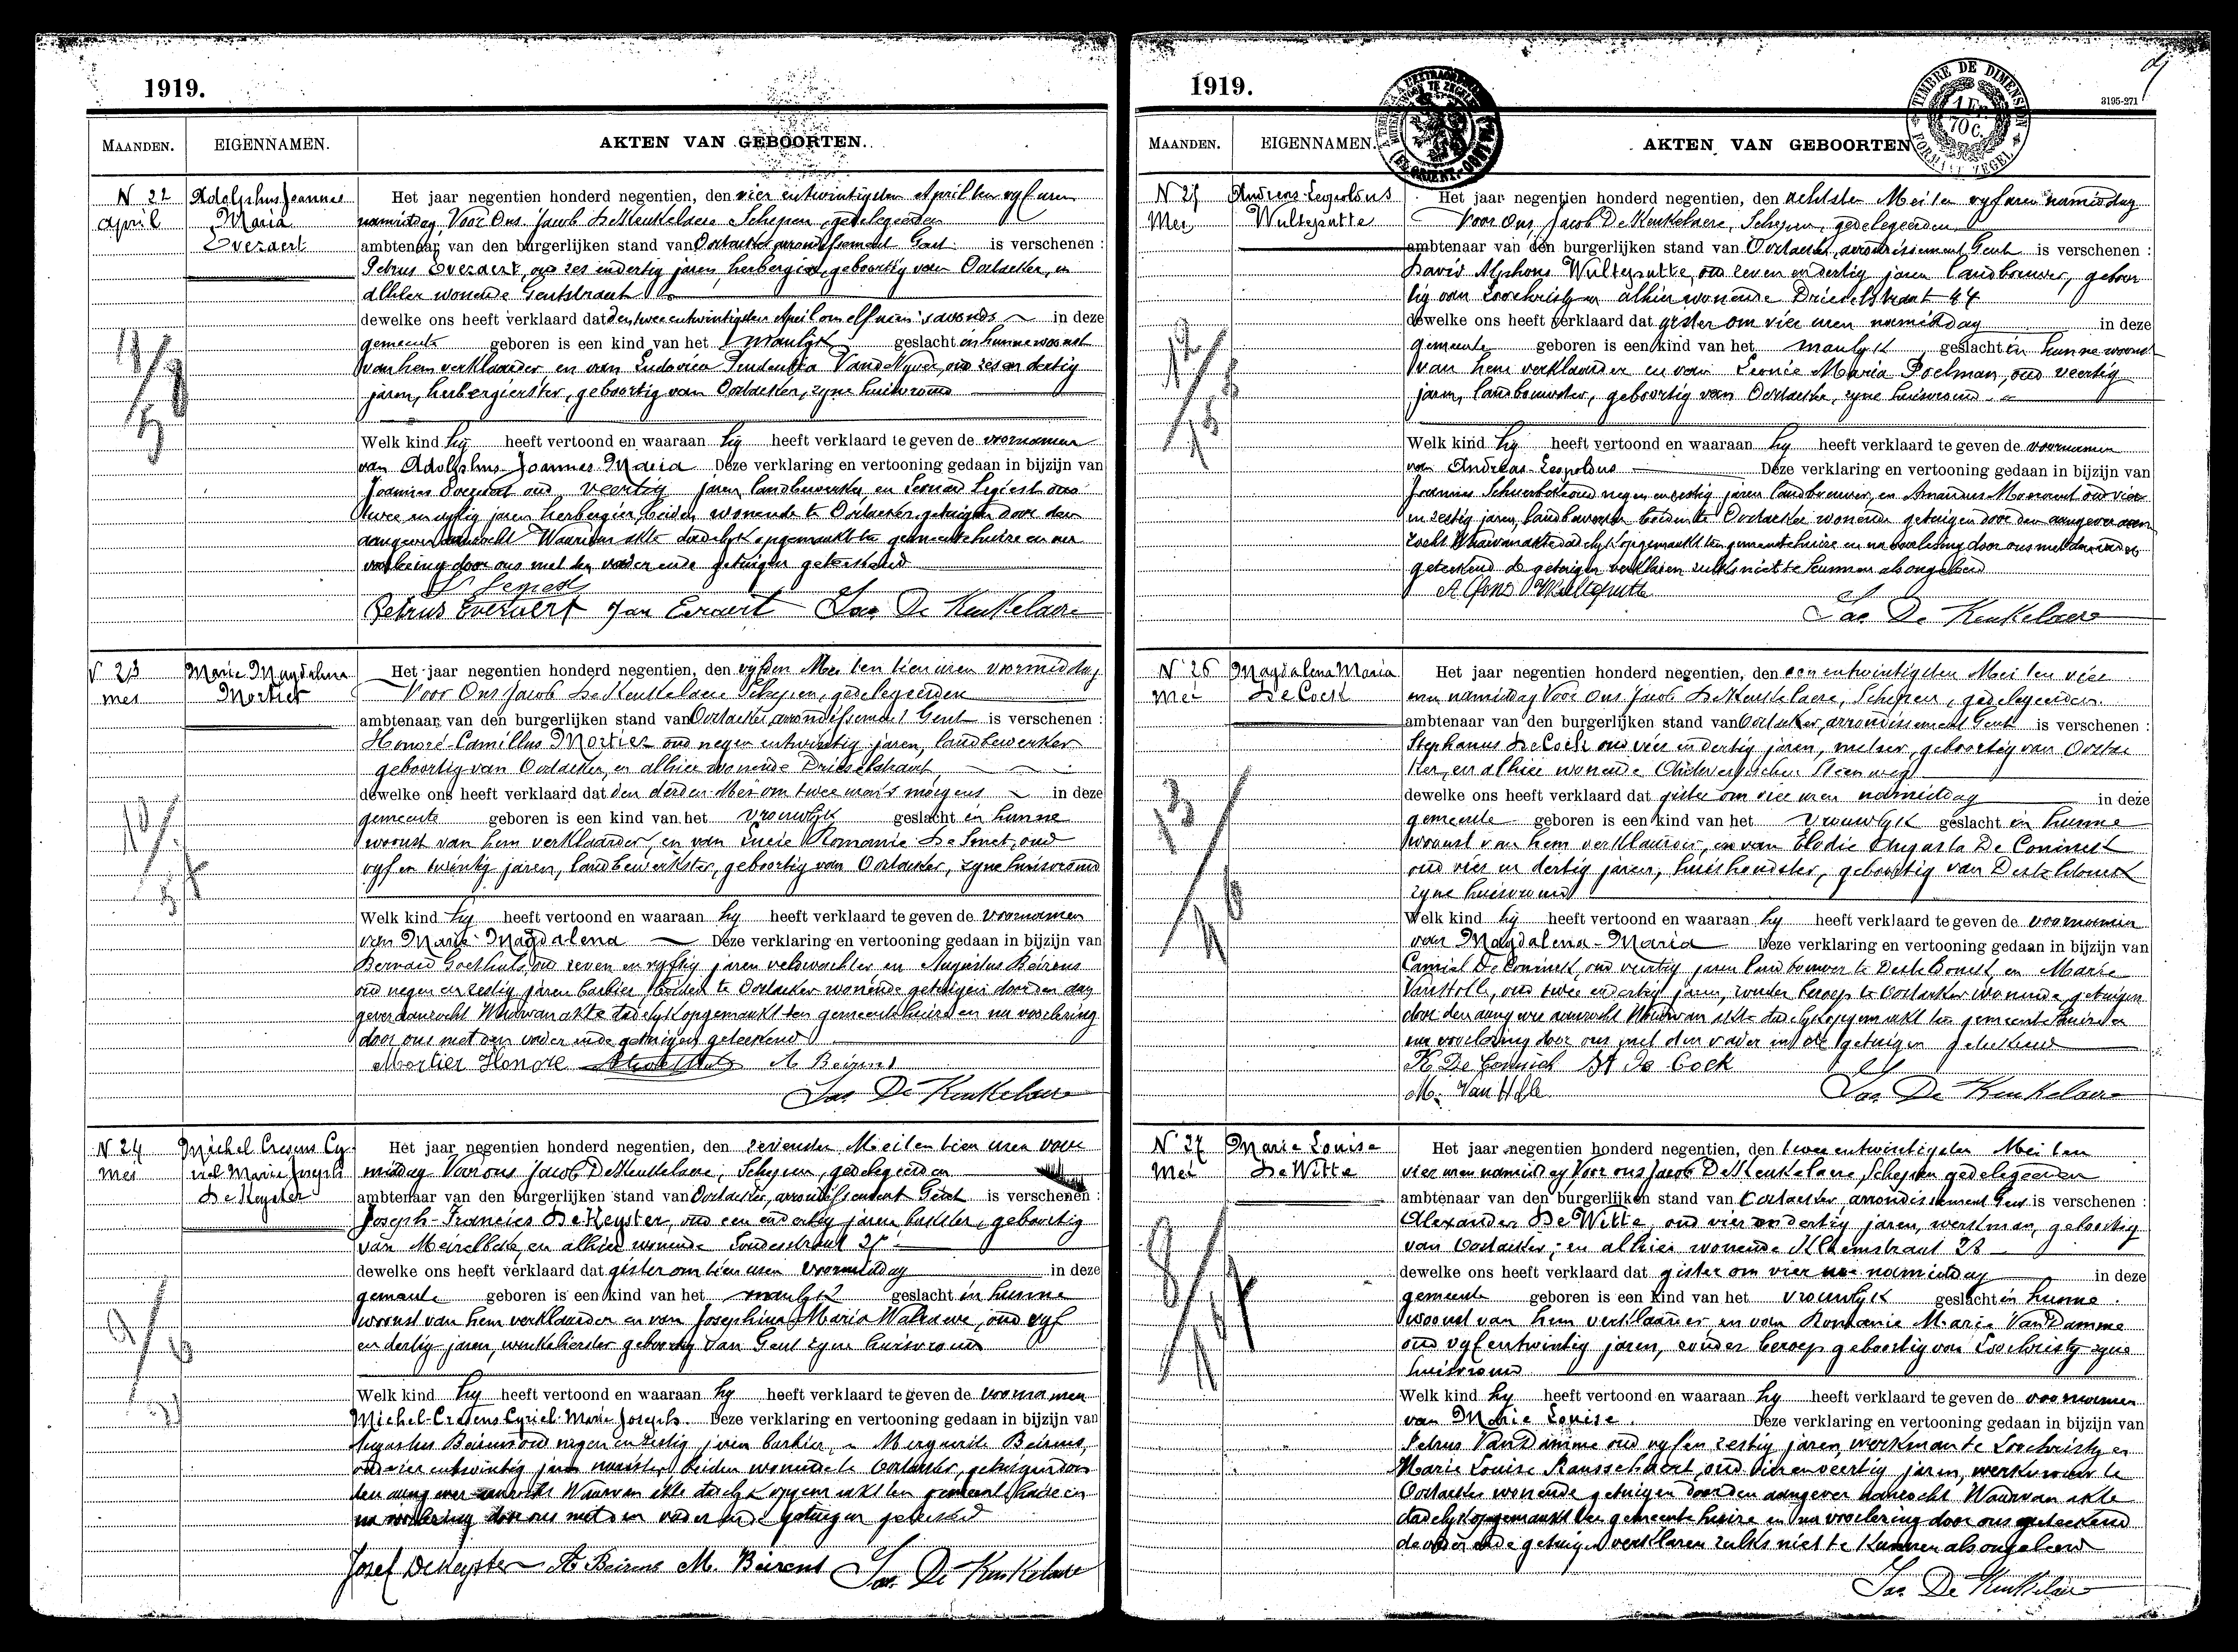 1919.
MAANDEN. EIGENNAMEN. AKTEN VAN GEBOORTEN.
N 22 Adolphus Joannes Het jaar negentien honderd negentien, den vier entwintigsten April ten vyf uren
April Maria namiddag, Voor Ons Jacob De Keukelaere Schepen, gedelegeerden
Everaert ambtenaar van den burgerlijken stand van Oostacker arrondissement Gent is verschenen :
Petrus Everaert, oud zes endertig jaren, herbergier, geboortig van Oostacker, en
alhier wonende Gentstraat
dewelke ons heeft verklaard dat den twee entwintigsten April om elf uren 's avonds in deze
gemeente geboren is een kind van het manlyk geslacht in hunne woonst
van hem verklaarder en van Ludovica Prudentia Vande Vyver, oud zes en dertig
jaren, herbergierster, geboortig van Oostacker, zyne huisvrouw
Welk kind hy heeft vertoond en waaraan hy heeft verklaard te geven de voornamen
van Adolphus Joannes Maria Deze verklaring en vertooning gedaan in bijzijn van
Joannes Everaert oud veertig jaren landbewerker, en Leonard Segiest oud
twee en vyftig jaren herbergier, beiden wonende te Oostacker getuigen door den
aangever aanzocht Waarvan akte dadelyk opgemaakt ten gemeentehuize en na
voorlezing door ons met den vader ende getuigen geteekend
Petrus Everaert Jan Everaert Jac De Keukelaere
N 23 Marie Magdalena Het jaar negentien honderd negentien, den vyfden Mei ten tien uren voormiddag
Mei Mortier Voor Ons Jacob De Keukelaere Schepen, gedelegeerden
ambtenaar van den burgerlijken stand van Oostacker, arrondissement Gent is verschenen :
Honoré Camillus Mortier oud negen entwintig jaren, landbewerker
geboortig van Oostacker, en alhier wonende Drieselstraat,
dewelke ons heeft verklaard dat den derden Mei om twee uren 's morgens in deze
gemeente geboren is een kind van het vrouwlyk geslacht in hunne
woonst van hem verklaarder, en van Lucie Romanie De Smet, oud
vyf en twintig jaren, landbewerkster, geboortig van Oostacker, zyne huisvrouw
Welk kind hy heeft vertoond en waaraan hy heeft verklaard te geven de voornamen
van Marie Magdalena Deze verklaring en vertooning gedaan in bijzijn van
Bernard Goethals, oud zeven en vyftig jaren veldwachter en Augustus Beirens
oud negen en zestig jaren barbier, beiden te Oostacker wonende getuigen door den aan
gever aanzocht Waarvan akte dadelyk opgemaakt ten gemeentehuize en na voorlezing
door ons met den vader ende getuigen geteekend
Mortier Honore A Beirens
Jac De Keukelaere
N 24 Michel Cresens Cy- Het jaar negentien honderd negentien, den zevensten Mei ten tien uren voor
Mei riel Marie Joseph middag Voor ons Jacob De Keukelaere, Schepen, gedelegeerden
De Keyster ambtenaar van den burgerlijken stand van Oostacker, arrondissement Gent is verschenen :
Joseph-Francies De Keyster, oud een endertig jaren bakker, geboortig
van Meirelbeke en alhier wonende
dewelke ons heeft verklaard dat gister om tien uren voormiddag in deze
gemeente geboren is een kind van het manlyk geslacht in hunne
woonst van hem verklaarder en van Josephina Maria Walrawe, oud vyf
en dertig jaren, winkelierster geboortig van Gent zyne huisvrouw
Welk kind hy heeft vertoond en waaraan hy heeft verklaard te geven de voornamen
Michel-Cresens Cyriel-Marie Joseph. Deze verklaring en vertooning gedaan in bijzijn van
Augustus Beirens oud negen en zestig jaren barbier, en Marguerite Beirens,
oud vier entwintig jaren naaister beiden wonende te Oostacker, getuigen door
den aangever aanzocht Waarvan akte dadelyk opgemaakt ten gemeentehuize en
na voorlezing door ons met den vader ende getuigen geteekend
Josef De Keyster A Beirens M. Beirens Jac De Keukelaere
1919.
3195-271
TIMBRE DE DIMENSION
1 Fr. 70 C.
FORMAAT ZEGEL
MAANDEN. EIGENNAMEN. AKTEN VAN GEBOORTEN
N 25 Andreas-Leopoldus Het jaar negentien honderd negentien, den achtsten Mei ten vyf uren namiddag
Mei Wulteputte Voor Ons Jacob De Keukelaere, Schepen, gedelegeerden
ambtenaar van den burgerlijken stand van Oostacker, arrondissement Gent is verschenen :
David Alphons Wulteputte, oud zeven en dertig jaren landbouwer, geboor
tig van Loochristy en alhier wonende Drieselstraat 44
dewelke ons heeft verklaard dat gister om vier uren namiddag in deze
gemeente geboren is een kind van het manlyk geslacht in hunne woonst
van hem verklaarder en van Leonie Maria Poelman, oud veertig
jaren, landbouwster, geboortig van Oostacker, zyne huisvrouw
Welk kind hy heeft vertoond en waaraan hy heeft verklaard te geven de voornamen
van Andreas-Leopoldus Deze verklaring en vertooning gedaan in bijzijn van
Joannes oud negen en zestig jaren landbouwer, en Amandus oud vier
en zestig jaren, landbewerker beiden te Oostacker wonende getuigen door den aangever aan
zocht Waarvan akte dadelyk opgemaakt ten gemeentehuize en na voorlezing door ons met den vader
geteekend de getuigen verklaren zulks niet te kunnen als ongeleerd
Alfons Wulteputte
Jac De Keukelaere
N 26 Magdalena Maria Het jaar negentien honderd negentien, den een entwintigsten Mei ten vier
Mei De Cock uren namiddag Voor Ons Jacob De Keukelaere, Schepen, gedelegeerden
ambtenaar van den burgerlijken stand van Oostacker, arrondissement Gent is verschenen :
Stephanus De Cock oud vier en dertig jaren, metser, geboortig van Oostac
ker, en alhier wonende Antwerpschen Steenweg
dewelke ons heeft verklaard dat gister om vier uren namiddag in deze
gemeente geboren is een kind van het vrouwlyk geslacht in hunne
woonst van hem verklaarder, en van Elodie Augusta De Coninck
oud vier en dertig jaren, huishoudster, geboortig van Desteldonck
zyne huisvrouw
Welk kind hy heeft vertoond en waaraan hy heeft verklaard te geven de voornamen
van Magdalena-Maria Deze verklaring en vertooning gedaan in bijzijn van
Camiel De Coninck, oud veertig jaren landbouwer te Desteldonck, en Marie
Van Holle, oud twee endertig jaren, zonder beroep te Oostacker wonende, getuigen
door den aangever aanzocht Waarvan akte dadelyk opgemaakt ten gemeentehuize en
na voorlezing door ons met den vader en de getuigen geteekend
K De Coninck St De Cock
M. Van Holle Jac De Keukelaere
N 27 Marie Louise Het jaar negentien honderd negentien, den twee entwintigsten Mei ten
Mei De Witte vier uren namiddag Voor ons Jacob De Keukelaere, Schepen gedelegeerden
ambtenaar van den burgerlijken stand van Oostacker, arrondissement Gent is verschenen :
Alexander De Witte, oud vier en dertig jaren, werkman, geboortig
van Oostacker, en alhier wonende
dewelke ons heeft verklaard dat gister om vier uren namiddag in deze
gemeente geboren is een kind van het vrouwlyk geslacht in hunne
woonst van hem verklaarder en van Romanie Marie Van Damme
oud vyf entwintig jaren, zonder beroep geboortig van Loochristy zyne
huisvrouw
Welk kind hy heeft vertoond en waaraan hy heeft verklaard te geven de voornamen
van Marie Louise. Deze verklaring en vertooning gedaan in bijzijn van
Petrus Van Damme oud vyf en zestig jaren, werkman te Loochristy en
Marie Louise oud vier en veertig jaren, werkvrouw te
Oostacker wonende getuigen door den aangever aanzocht Waarvan akte
dadelyk opgemaakt ten gemeente huize en na voorlezing door ons geteekend
de vader ende getuigen verklaren zulks niet te kunnen als ongeleerd
Jac De Keukelaere